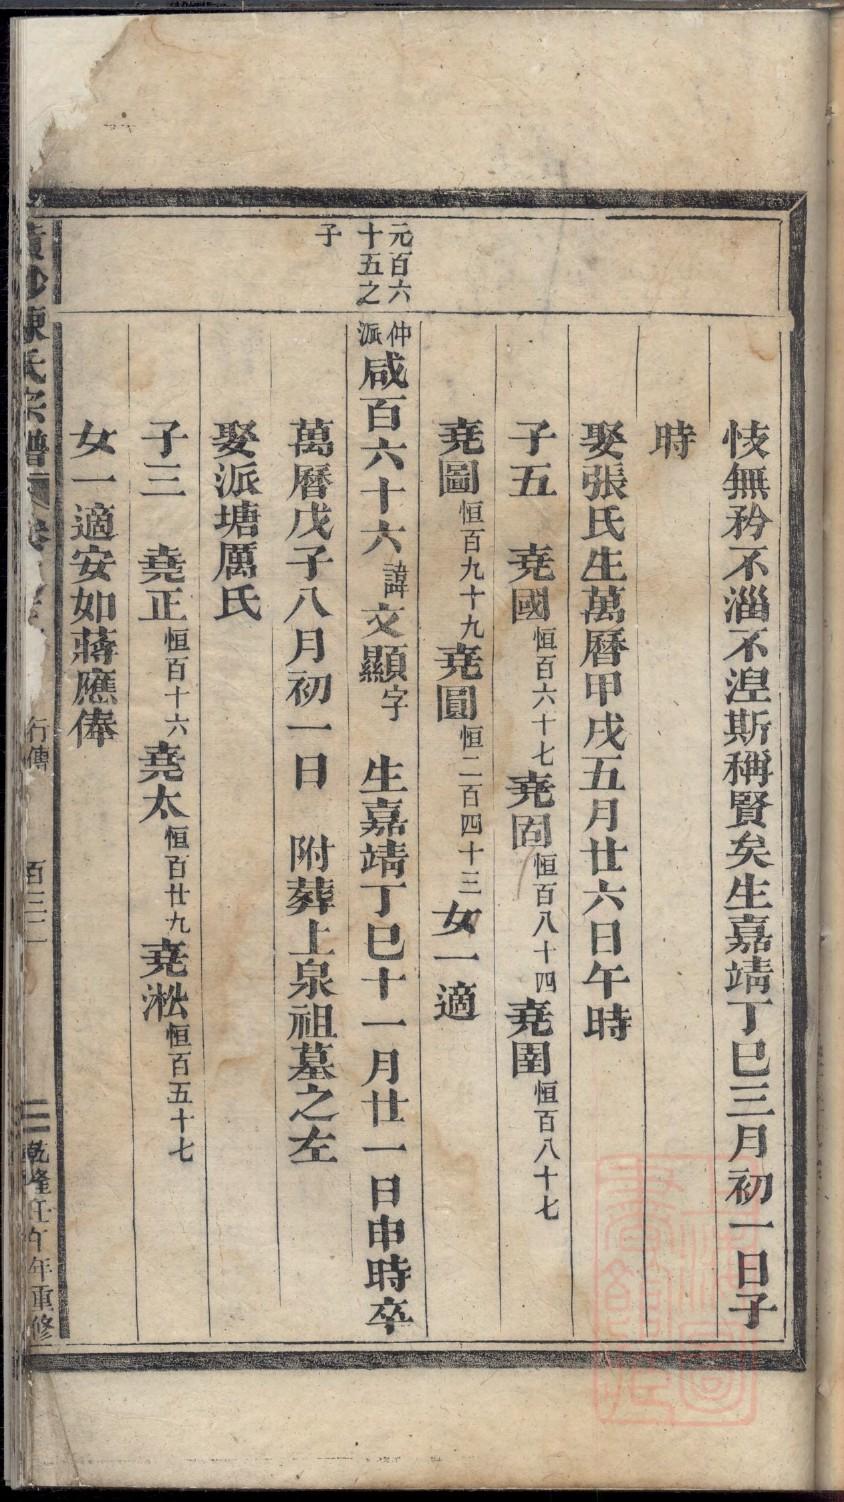 忮無矜不淄不湼斯稱賢矣生嘉靖丁巳三月初一日子
時
娶張氏生萬曆甲戌五月廿六日午時
子五 堯國恒百六十七堯固恒百八十四堯圉恒百八十七
堯圖恒百九十九堯圓恒二百四十三女一適
元百六十五之子
仲派咸百六十六諱文顯字 生嘉靖丁巳十一月廿一日申時卒
萬曆戊子八月初一日 附葬上泉祖墓之左
娶派塘厲氏
子三 堯正恒百十六堯太恒百廿九堯淞恒百五十七
女一適安如蔣應俸
陳氏宗譜 行傳 百三二 乾隆壬午年重修